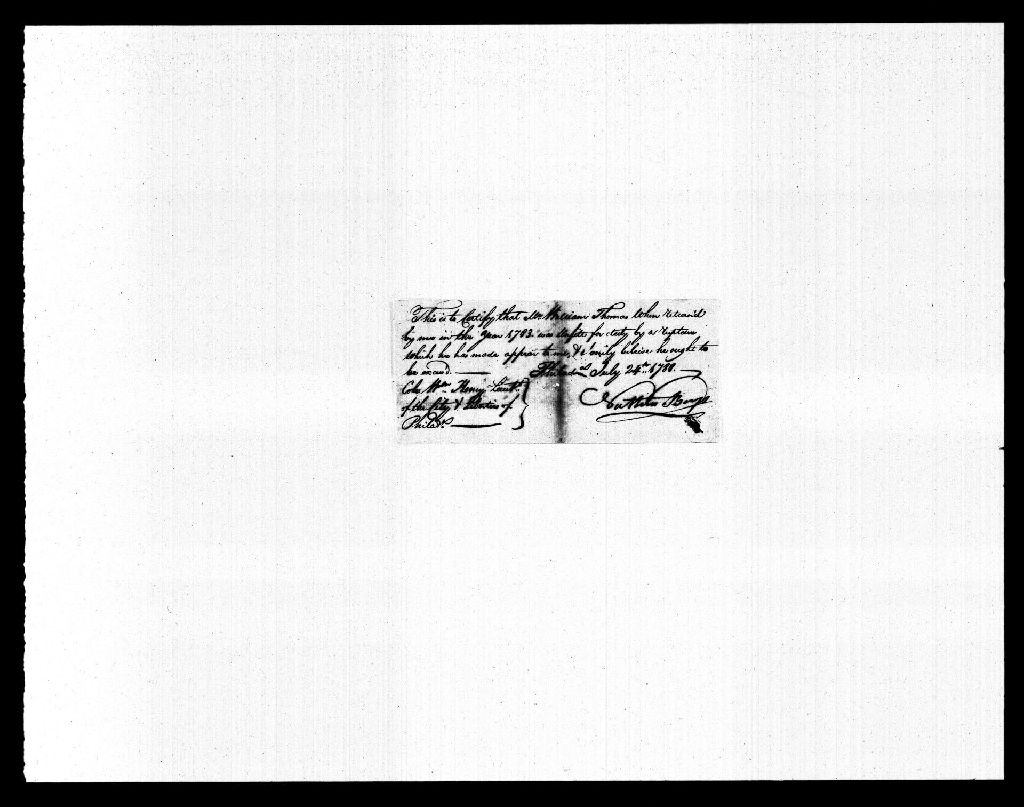 This is to Certify that Mr. William Thomas When
by me in the Year 1783. was for duty by a Rupture
which he has made appear to me, & I beleive he ought to
be excused.
Philada. July 24th. 1788.
Colo. Wm. Henry Lieut.
of the City & Liberties of
Philada.